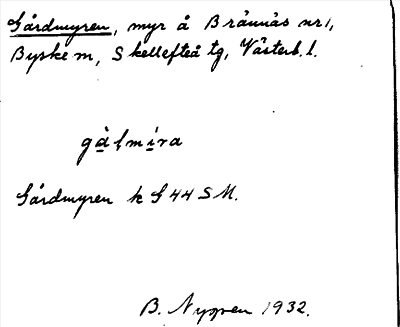 Gårdmyren, myr å Brännäs nr 1,
Byske m, Skellefteå tg, Västerb. l.
gålmira
Gårdmyren k G 44 SM.
B. Nygren 1932.